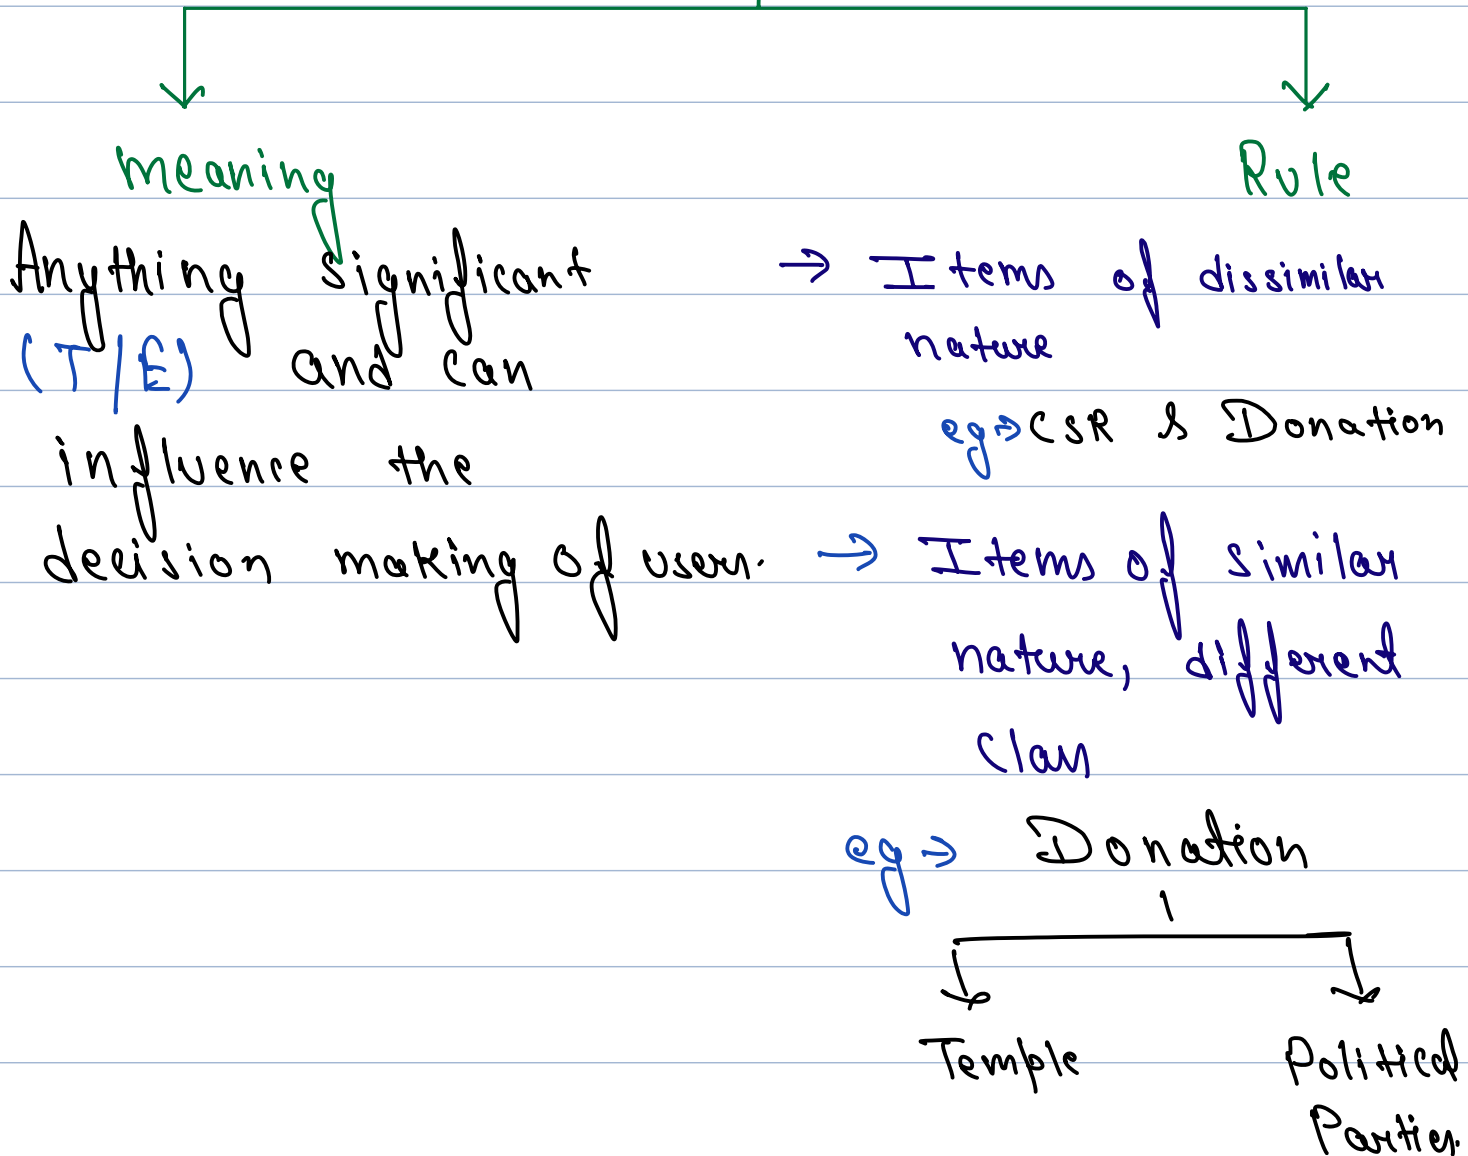 Meaning
Anything significant
(T/E) and can
influence the
decision making of users.
Rule
→ Items of dissimilar
nature
eg→ CSR & Donation
→ Items of similar
nature, different
class
eg → Donation
Temple
Political
Parties.